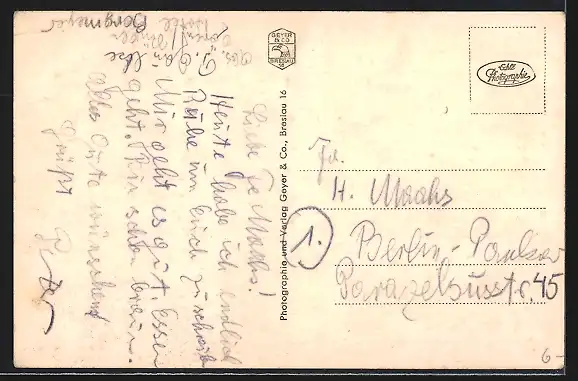 Abs. P.
Hotel Borgmeyer
Liebe Fr. Maahs!
Heute habe ich endlich
Ruhe um Euch zu schreib
Mir geht es gut. Essen
geht. Bin schon braun.
Alles Gute wünschend
Grüßt
Peter
GEYER
& CO
BRESLAU
16
Photographie und Verlag Geyer & Co., Breslau 16
Echte
Photographie
Fr.
H. Maahs
1.
Berlin-Pankow
Parazelsusstr. 45
6-